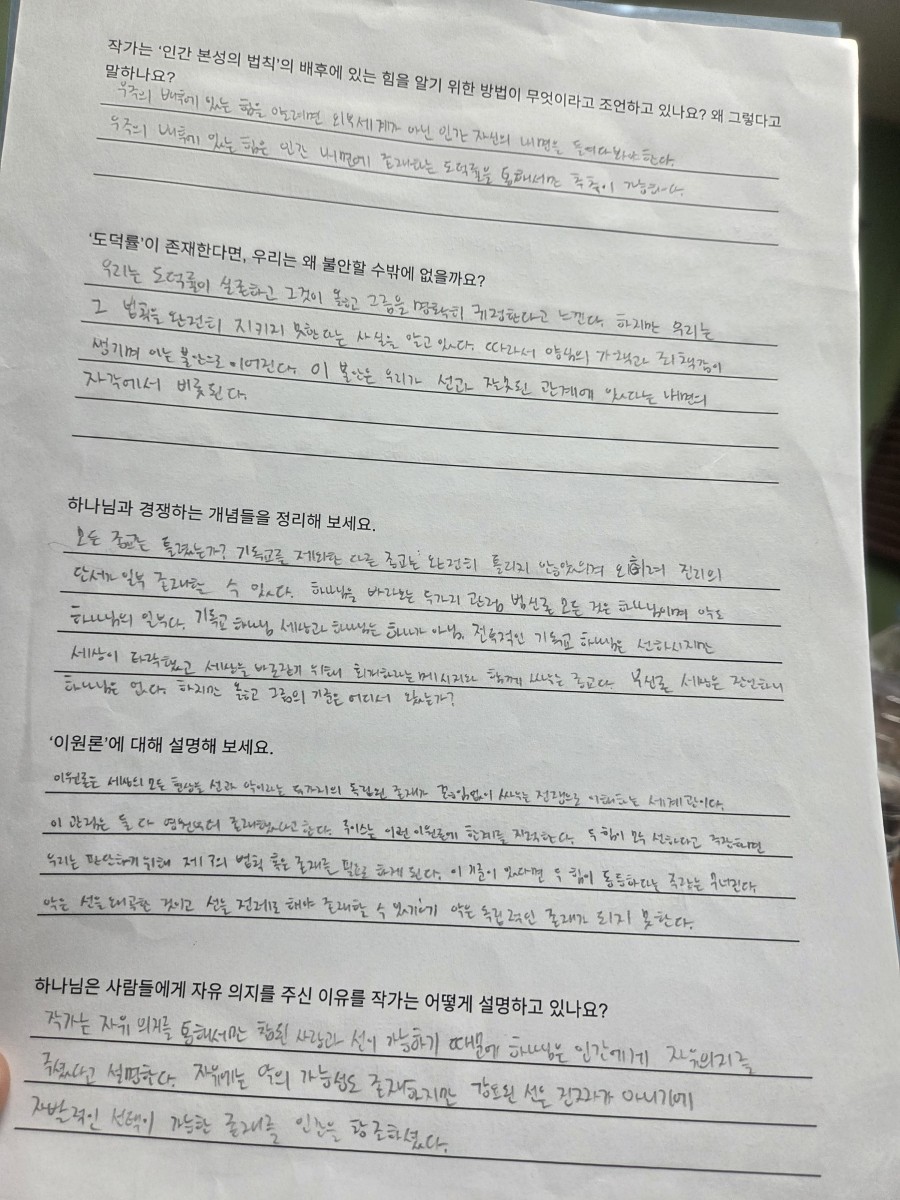 작가는 ‘인간 본성의 법칙’의 배후에 있는 힘을 알기 위한 방법이 무엇이라고 조언하고 있나요? 왜 그렇다고
말하나요?
우주의 배후에 있는 힘을 알려면 외부세계가 아닌 인간 자신의 내면을 들여다봐야 한다.
우주의 배후에 있는 힘은 인간 내면에 존재하는 도덕률을 통해서만 추측이 가능하다.
‘도덕률’이 존재한다면, 우리는 왜 불안할 수밖에 없을까요?
우리는 도덕률이 실존하고 그것이 옳고 그름을 명확히 규정한다고 느낀다. 하지만 우리는
그 법칙을 완전히 지키지 못한다는 사실을 알고 있다. 따라서 양심의 가책과 죄책감이
생기며 이는 불안으로 이어진다. 이 불안은 우리가 선과 잘못된 관계에 있다는 내면의
자각에서 비롯된다.
하나님과 경쟁하는 개념들을 정리해 보세요.
모든 종교는 틀렸는가? 기독교를 제외한 다른 종교는 완전히 틀리지 않았으며 오히려 진리의
단서가 일부 존재할 수 있다. 하나님을 바라보는 두가지 관점 범신론 모든 것은 하나님이며 악도
하나님의 일부다. 기독교 하나님 세상과 하나님은 하나가 아님, 전통적인 기독교 하나님은 선하시지만
세상이 타락했고 세상을 바로잡기 위해 회개하라는 메시지와 함께 싸우는 종교다. 무신론 세상은 잔인하니
하나님은 없다. 하지만 옳고 그름의 기준은 어디서 왔는가?
‘이원론’에 대해 설명해 보세요.
이원론은 세상의 모든 현상을 선과 악이라는 두가지의 독립된 존재가 끊임없이 싸우는 전쟁으로 이해하는 세계관이다.
이 관점은 둘 다 영원부터 존재했다고 한다. 루이스는 이런 이원론에 한계를 지적한다. 두 힘이 모두 선하다고 주장하면
우리는 판단하기 위해 제 3의 법칙 혹은 존재를 필요로 하게 된다. 이 기준이 있다면 두 힘이 동등하다는 주장은 무너진다.
악은 선을 왜곡한 것이고 선을 전제로 해야 존재할 수 있기에 악은 독립적인 존재가 되지 못한다.
하나님은 사람들에게 자유 의지를 주신 이유를 작가는 어떻게 설명하고 있나요?
작가는 자유 의지를 통해서만 참된 사랑과 선이 가능하기 때문에 하나님은 인간에게 자유의지를
주셨다고 설명한다. 자유에는 악의 가능성도 존재하지만 강요된 선은 진짜가 아니기에
자발적인 선택이 가능한 존재를 인간을 창조하셨다.